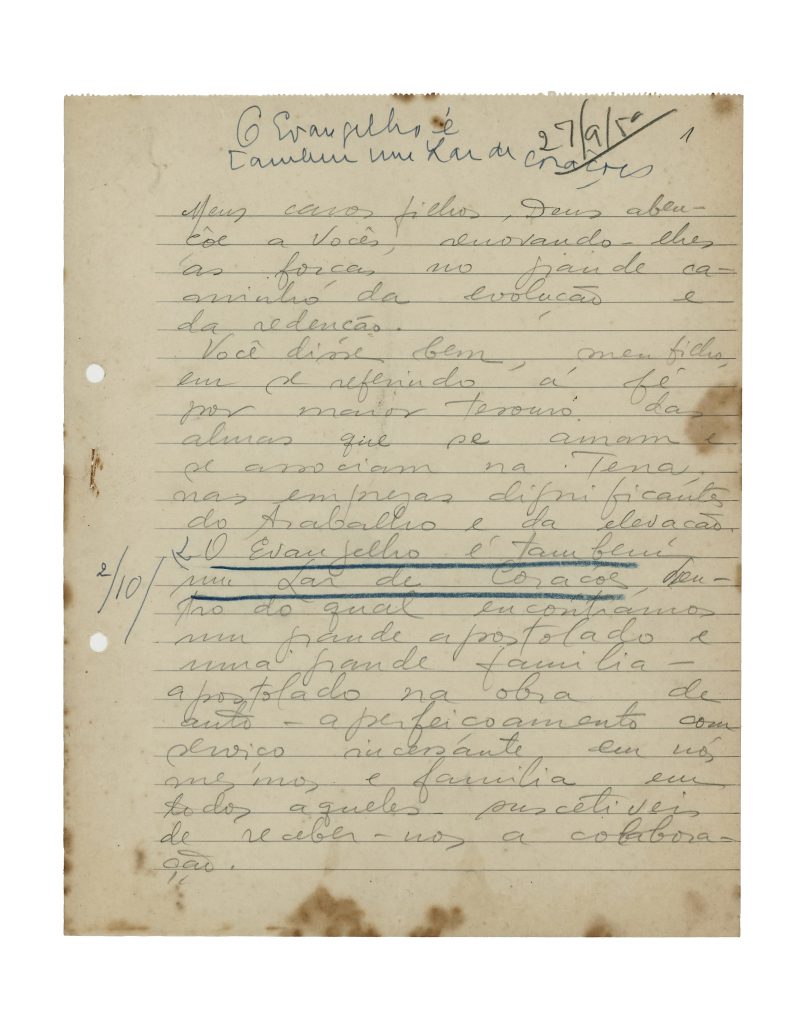 O Evangelho é
Tambem um Lar de Corações
27/9/50
1
Meus caros filhos, Deus aben-
çõe a Vocês, renovando-lhes
as forças no grande ca-
minho da evolução e
da redenção.
Você disse bem, meu filho,
em se referindo á fé
por maior Tesouro das
almas que se amam e
se associam na Terra,
nas emprezas dignificantes
do Trabalho e da elevação.
O Evangelho é tambem
um Lar de Coracões den-
tro do qual encontrámos
um grande apostolado e
uma grande familia -
apostolado na obra de
auto-aperfeicoamento com
serviço incessante em nós
mesmos e familia em
todos aqueles suscetiveis
de receber-nos a colabora-
ção.
2/10/